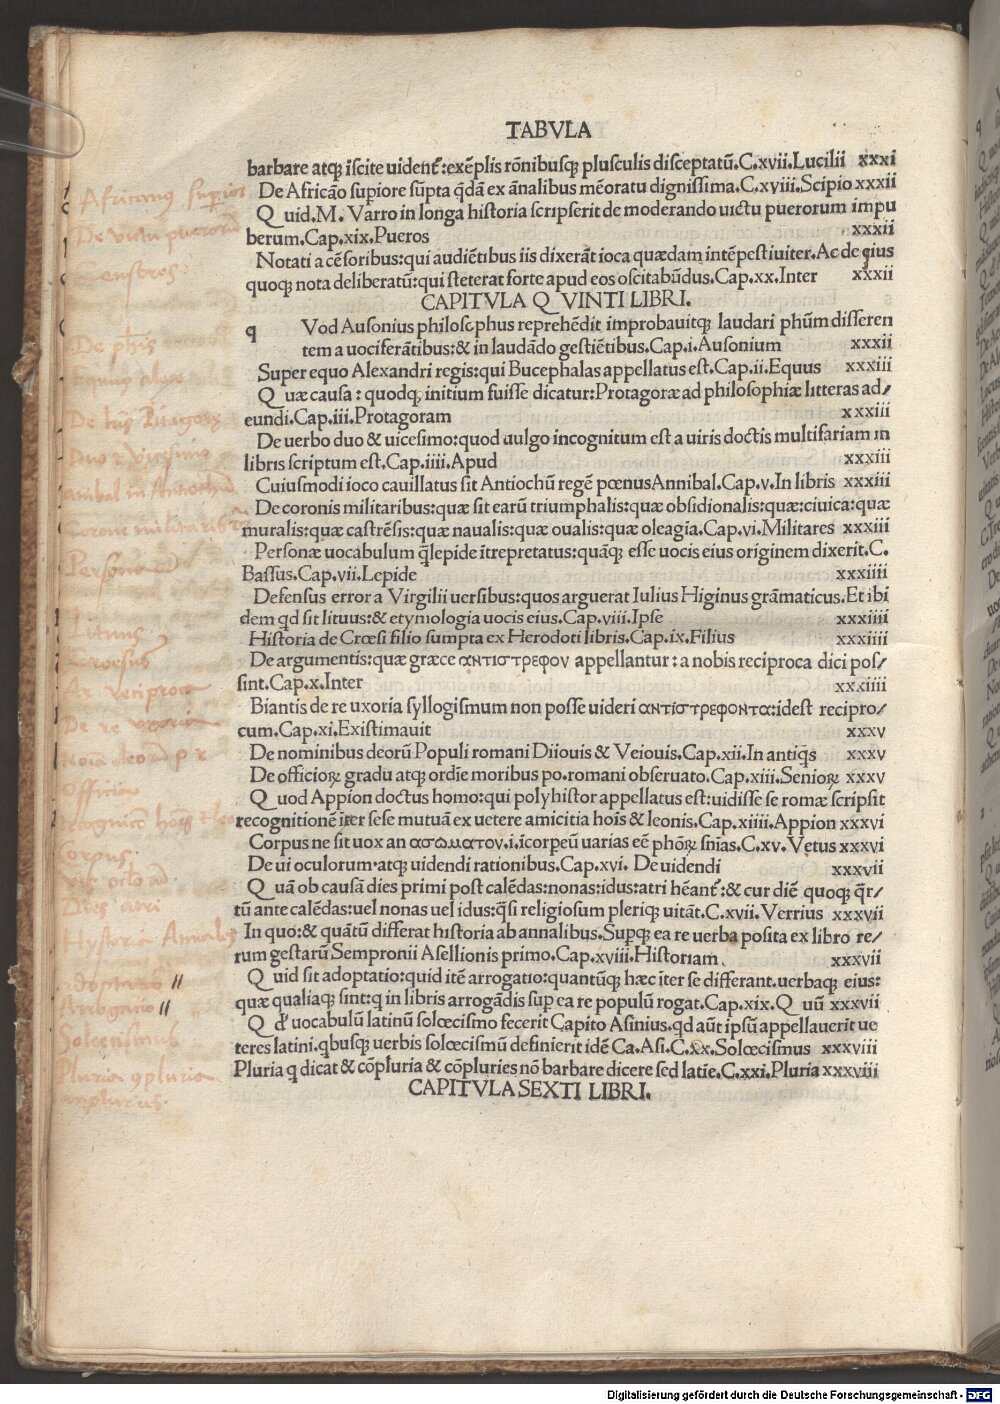 TABVLA
barbare atqꝫ ĩscite uidentᷣ:exẽplis rõnibusqꝫ plusculis disceptatũ.C.xvii.Lucilii xxxi
De Africão supiore sũpta q̃dã ex ãnalibus mẽoratu dignissima.C.xviii.Scipio xxxii
Q uid.M.Varro in longa historia scripserit de moderando uictu puerorum impu
berum.Cap.xix.Pueros xxxii
Notati a cẽsoribus:qui audiẽtibus iis dixerãt ioca quædam intẽpestiuiter.Ac de eius
quoqꝫ nota deliberatũ:qui steterat forte apud eos oscitabũdus.Cap.xx.Inter xxxii
CAPITVLA Q VINTI LIBRI.
q Vod Ausonius philosophus reprehẽdit improbauitqꝫ laudari phũm disseren
tem a uociferãtibus:& in laudãdo gestiẽtibus.Cap.i.Ausonium xxxii
Super equo Alexandri regis:qui Bucephalas appellatus est.Cap.ii.Equus xxxiii
Q uæ causa: quodqꝫ initium fuisse dicatur:Protagoræ ad philosophiæ litteras ad/
eundi.Cap.iii.Protagoram xxxiii
De uerbo duo & uicesimo:quod uulgo incognitum est a uiris doctis multifariam in
libris scriptum est.Cap.iiii.Apud xxxiii
Cuiusmodi ioco cauillatus sit Antiochũ regẽ pœnus Annibal.Cap.v.In libris xxxiii
De coronis militaribus:quæ sit earũ triumphalis:quæ obsidionalis:quæ:ciuica:quæ
muralis:quæ castrẽsis:quæ naualis:quæ oualis:quæ oleagia.Cap.vi.Militares xxxiii
Personæ uocabulum q̃lepide ĩtrepretatus:quãqꝫ esse uocis eius originem dixerit.C.
Bassus.Cap.vii.Lepide xxxiiii
Defensus error a Virgilii uersibus:quos arguerat Iulius Higinus grãmaticus.Et ibi
dem qd sit lituus:& etymologia uocis eius.Cap.viii.Ipse xxxiiii
Historia de Crœsi filio sumpta ex Herodoti libris.Cap.ix.Filius xxxiiii
De argumentis:quæ græce αντιστρεφον appellantur:a nobis reciproca dici pos/
sint.Cap.x.Inter xxxiiii
Biantis de re uxoria syllogismum non posse uideri αντιστρεφοντα:idest recipro/
cum.Cap.xi.Existimauit xxxv
De nominibus deorũ Populi romani Diiouis & Veiouis.Cap.xii.In antiq̃s xxxv
De officioꝝ gradu atqꝫ ordĩe moribus po.romani obseruato.Cap.xiii.Senioꝝ xxxv
Q uod Appion doctus homo:qui polyhistor appellatus est:uidisse se romæ scripsit
recognitionẽ iter sese mutuã ex uetere amicitia hoĩs & leonis.Cap.xiiii.Appion xxxvi
Corpus ne sit uox an ασωματον.i.ĩcorpeũ uarias eẽ phõꝝ sñias.C.xv.Vetus xxxvi
De ui oculorum·atqꝫ uidendi rationibus.Cap.xvi. De uidendi xxxvii
Q uã ob causã dies primi post calẽdas:nonas:idus:atri hẽantᷣ:& cur diẽ quoqꝫ q̃r/
tũ ante calẽdas:uel nonas uel idus:q̃si religiosum pleriqꝫ uitãt.C.xvii.Verrius xxxvii
In quo:& quãtũ differat historia ab annalibus.Supqꝫ ea re uerba posita ex libro re/
rum gestarũ Sempronii Asellionis primo.Cap.xviii.Historiam. xxxvii
Q uid sit adoptatio:quid itẽ arrogatio:quantũqꝫ hæc iter se differant.uerbaqꝫ eius:
quæ qualiaqꝫ sint:q in libris arrogãdis sup ea re populũ rogat.Cap.xix.Q uũ xxxvii
Q đ uocabulũ latinũ solœcismo fecerit Capito Asinius.qd aũt ipsũ appellauerit ue
teres latini.qbusqꝫ uerbis solœcismũ definierit idẽ Ca.Asi.C.xx.Solœcismus xxxviii
Pluria q dicat & cõpluria & cõpluries nõ barbare dicere sed latie.C.xxi.Pluria xxxviii
CAPITVLA SEXTI LIBRI.
Africanus superior
De victu puerorũ
Censores
De phis
Duo & Vicesimo
Persona
Lituus
Croesus
De re uxoria
Officia
Corpus
Dies atri
Hystoria Annalis
Adoptatio
Arrogatio
Soloecismus
Digitalisierung gefördert durch die Deutsche Forschungsgemeinschaft - DFG